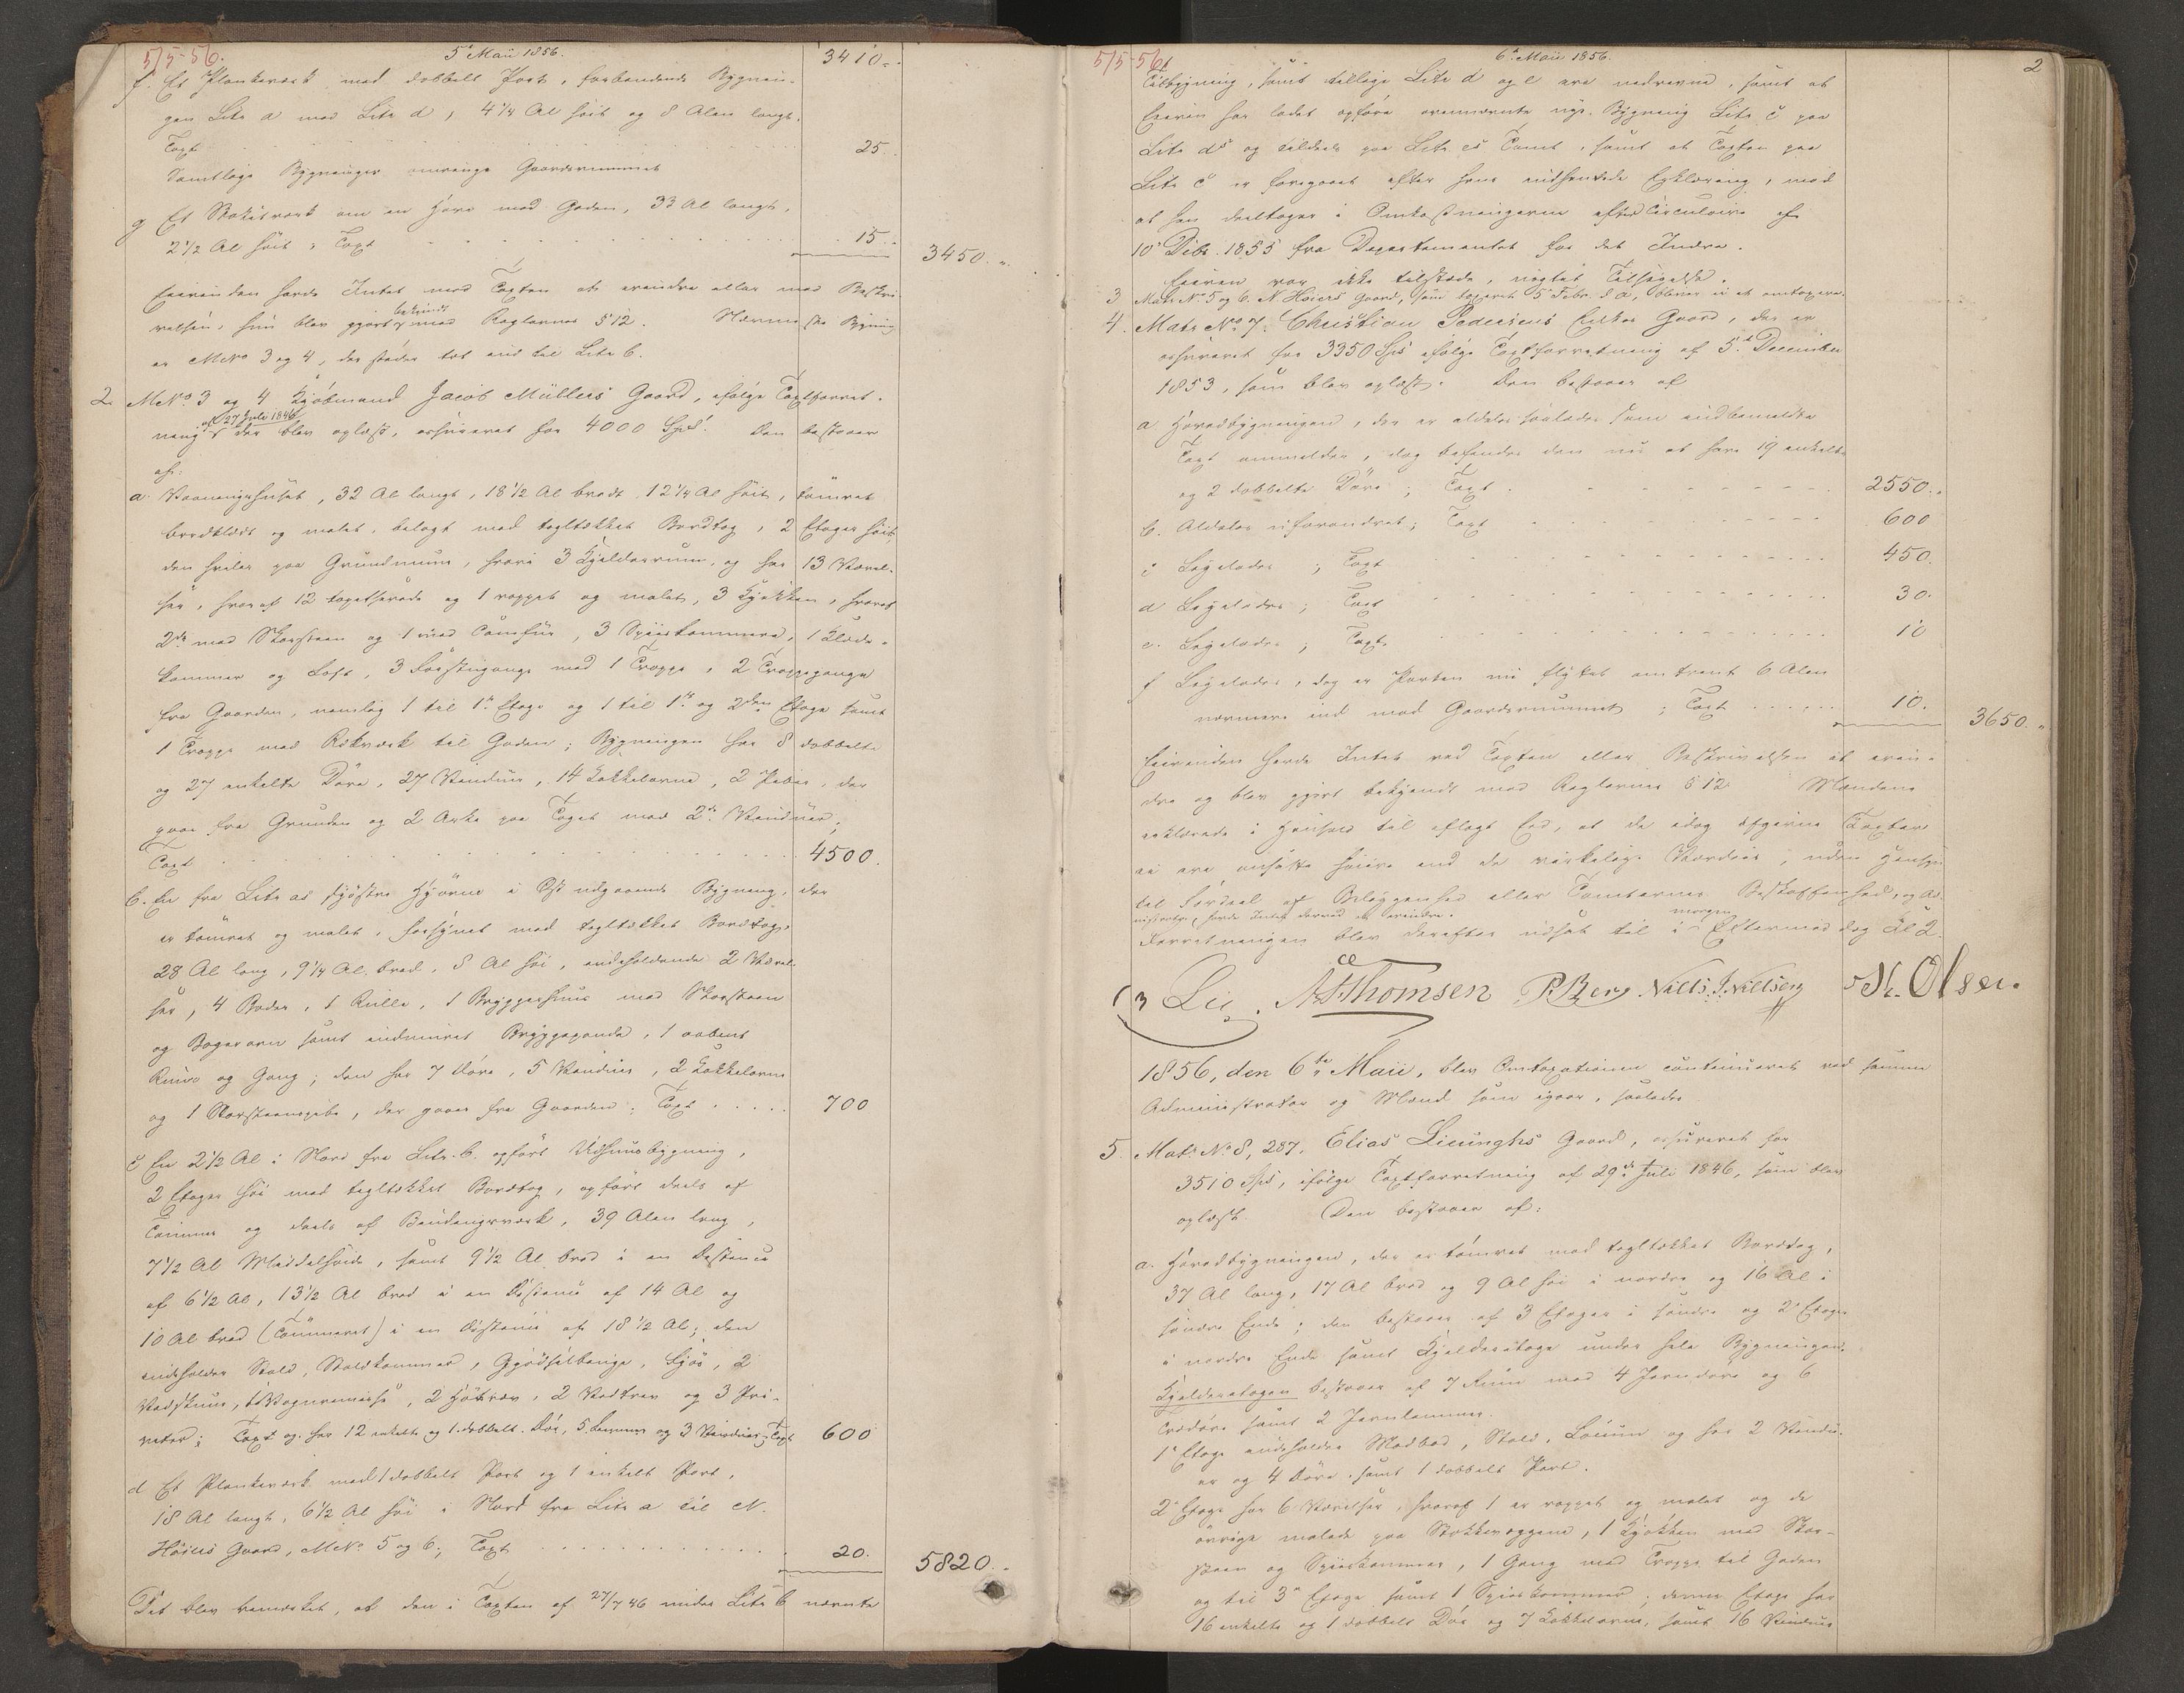 5/5-56.
5te Maii 1856.
3410 „
f. Et Plankeværk med dobbelt Port, forbindende Bygnin-
gen Litr a med Litr d, 4 1/4 Al høit og 8 Alen langt.
Taxt 25
Samtlige Bygninger omringe Gaardsrummet
g Et Stakitværk om en Have mod Gaden, 33 Al langt,
2 1/2 Al høit; Taxt 15 „
3450. „
Eierinden havde Intet mod Taxten at erindre eller mod Beskri-
velsen, hun blev gjort bekjendt med Reglernes § 12. Nærmeste Bygning
er MNo 3 og 4, der støder tæt ind til Litr b.
2. MNo 3 og 4 Kjøbmand Jacob Müllers Gaard, ifølge Taxtforret-
ning af 27 Juli 1846 der blev oplæst, assureret for 4000 Spd. Den bestaaer
af:
a. Vaaningshuset, 32 Al langt, 18 1/2 Al bredt, 12 1/4 Al høit, tømret
bordklædt og malet, belagt med tegltækket Bordtag, 2 Etager høit,
den hviler paa Grundmuur, hvori 3 Kjelderrum, og har 13 Værel-
ser, hvoraf 12 tapetserede og 1 pappet og malet, 3 Kjøkken, hvoraf
2de med Skorsteen og 1 med Comfur, 3 Spiiskammere, 1 Klæde-
kammer og Loft, 3 Forstugange med 1 Trappe, 2 Trappegange
fra Gaarden, nemlig 1 til 1te Etage og 1 til 1te og 2den Etage samt
1 Trappe med Rækværk til Gaden; Bygningen har 8 dobbelte
og 27 enkelte Døre, 27 Vinduer, 14 Kakkelovne, 2 Piber, der
gaae fra Grunden og 2 Arke paa Taget med 2de Vinduer;
Taxt 4500.
b. En fra Litr as sydøstre Hjørne i Øst udgaaende Bygning, der
er tømret og malet, forsynet med tegltækket Bordtag,
28 Al lang, 9 1/4 Al. bred, 8 Al høi, indeholdende 2 Værel-
ser, 4 Boder, 1 Rulle, 1 Bryggerhuus med Skorsteen
og Bagerovn samt indmuret Bryggepande, 1 aabent
Rum og Gang; den har 7 Døre, 5 Vinduer, 2 Kakkelovne
og 1 Skorsteenspibe, der gaaer fra Gaarden; Taxt 700
c En 2 1/2 Al i Nord fra Litr. b. opført Udhuusbygning,
2 Etager høi med tegltækket Bordtag, opført deels af
Tømmer og deels af Bindingsværk, 39 Alen lang,
7 1/2 Al Middelhøide, samt 9 1/2 Al bred i en Distance
af 6 1/2 Al, 13 1/2 Al bred i en Distance af 14 Al og
10 Al bred (Tømmeret) i en Distance af 18 1/2 Al; den
indeholder Stald, Staldkammer, Gjødselbinge, Fjøs, 2
Vedskuur, 1 Vognremisse, 2 Høtrev, 2 Vedtrev og 3 Pri-
veter; Taxt og har 12 enkelte og 1 dobbelt Dør, 5 Lemmer og 3 Vinduer; Taxt 600
d Et Plankeværk med 1 dobbelt Port og 1 enkelt Port,
18 Al langt, 6 1/2 Al høi i Nord fra Litr a til N.
Høiers Gaard, MNo 5 og 6; Taxt 20.
5820. „
Det blev bemærket, at den i Taxten af 27/7 46 under Litr b nævnte
5/5-56
6te Maii 1856.
2
Tilbygning, samt tillige Litr d og e ere nedrevne, samt at
Eieren har ladet opføre ovennævnte nye Bygning Litr c paa
Litr ds og tildeels paa Litr es Tomt, samt at Taxten paa
Litr c er foregaaet efter hans indhentede Erklæring, mod
at han deeltager i Omkostningerne efter Circulaire af
10de Dcbr. 1855 fra Departementet for det Indre.
Eieren var ikke tilstæde, uagtet Tilsigelse.
3 Matr No 5 og 6. N Høiers Gaard, som taxeret 5 Febr. d A, bliver ei at omtaxere.
4. Matr No 7. Christian Pedersens Enkes Gaard, der er
assureret for 3350 Spd ifølge Taxtforretning af 5te December
1853, som blev oplæst. Den bestaaer af
a. Hovedbygningen, der er aldeles saaledes som indbemeldte
Taxt ommelder, dog befindes den nu at have 19 enkelte
og 2 dobbelte Døre; Taxt 2550. „
b. Aldeles uforandret; Taxt 600
c Ligeledes; Taxt 450.
d Ligeledes; Taxt 30.
e. Ligeledes; Taxt. 10
f Ligeledes, dog er Porten nu flyttet omtrent 6 Alen
nærmere ind mod Gaardsrummet; Taxt 10.
3650. „
Eierinden havde Intet ved Taxten eller Beskrivelsen at erin-
dre og blev gjort bekjendt med Reglernes § 12. Mændene
erklærede i Henhold til aflagt Eed, at de idag afgivne Taxter
ei ere ansatte høiere end de virkelige Værdier, uden Hensyn
til Fordeel af Beliggenhed eller Tomternes Beskaffenhed, og Ad-
ministrator havde Intet derved at erindre.
Forretningen blev derefter udsat til i morgen Eftermiddag Kl 2.
Lie. N. Thomsen P. Berg Niels J. Nielsen N. Olsen.
1856, den 6te Maii, blev Omtaxationen continueret ved samme
Administrator og Mænd som igaar, saaledes
5. Matr No 8, 287. Elias Liunghs Gaard, assureret for
3510 Spd, ifølge Taxtforretning af 29de Juli 1846, som blev
oplæst. Den bestaaer af:
a. Hovedbygningen, der er tømret med tegltækket Bordtag,
37 Al lang, 17 Al bred og 9 Al høi i nordre og 16 Al i
søndre Ende; den bestaaer af 3 Etager i søndre og 2 Etager
i nordre Ende samt Kjelderetage under hele Bygningen.
Kjelderetagen bestaaer af 7 Rum med 4 Jerndøre og 6
Trædøre samt 2 Jernlemmer.
1e Etage indeholder Madbod, Stald, Locum og har 2 Vindu-
er og 4 Døre, samt 1 dobbelt Port.
2e Etage har 6 Værelser, hvoraf 1 er pappet og malet og de
øvrige malede paa Stokkevæggene, 1 Kjøkken med Skor-
steen og Spiiskammer, 1 Gang med Trappe til Gaden
og til 3e Etage samt 1 Spiiskammer; denne Etage har
16 enkelte og 1 dobbelt Dør og 7 Kakkelovne, samt 16 Vinduer